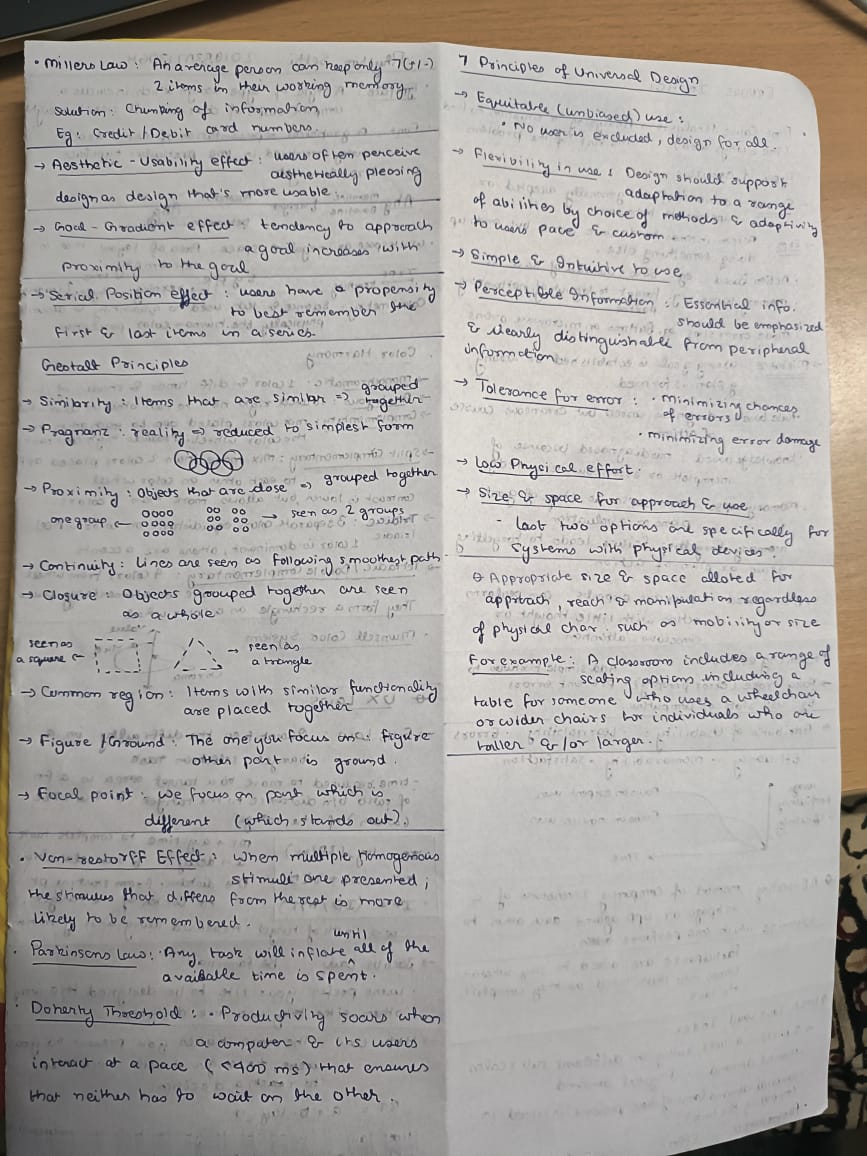 • Millers Law : An average person can keep only 7(+/-)
2 items in their working memory.
Solution : Chunking of information
Eg : Credit / Debit card numbers.
→ Aesthetic - Usability effect : users often perceive
aesthetically pleasing
design as design that's more usable.
→ Goal - Gradient effect : tendency to approach
a goal increases with
proximity to the goal
→ Serial Position effect : users have a propensity
to best remember the
first & last items in a series.
Gestalt Principles
→ Similarity : Items that are similar => grouped
together
→ Pragnanz : reality => reduced to simplest form
→ Proximity : Objects that are close => grouped together
one group ← → seen as 2 groups
→ Continuity : Lines are seen as following smoothest path
→ Closure : Objects grouped together are seen
as a whole
seen as
a square ← → seen as
a triangle
→ Common region : Items with similar functionality
are placed together
→ Figure / Ground : The one you focus on : figure
other part is ground.
→ Focal point : we focus on part which is
different (which stands out).
• Von-restorff Effect : when multiple homogenous
stimuli are presented ;
the stimulus that differs from the rest is more
likely to be remembered.
• Parkinsons Law : Any task will inflate until all of the
available time is spent.
• Doherty Threshold : • Productivity soars when
a computer & its users
interact at a pace (<400 ms) that ensures
that neither has to wait on the other.
7 Principles of Universal Design
→ Equitable (unbiased) use :
• No user is excluded, design for all.
→ Flexibility in use : Design should support
adaptation to a range
of abilities by choice of methods & adaptivity
to users pace & custom.
→ Simple & Intuitive to use
→ Perceptible Information : Essential info.
should be emphasized
& clearly distinguishable from peripheral
information
→ Tolerance for error : • minimizing chances
of errors
• minimizing error damage
→ Low Physical effort.
→ Size & space for approach & use
- Last two options are specifically for
systems with physical devices.
Appropriate size & space alloted for
approach, reach & manipulation regardless
of physical char. such as mobility or size
For example : A classroom includes a range of
seating options including a
table for someone who uses a wheelchair
or wider chairs for individuals who are
taller & / or larger.